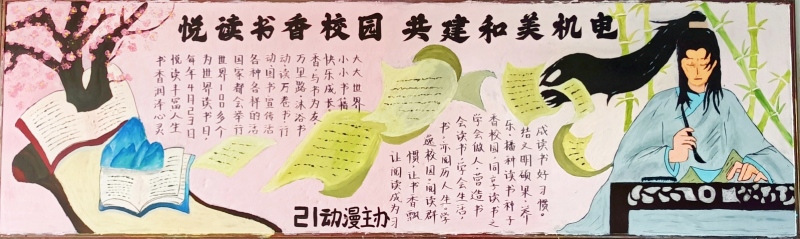 悦读书香校园 共建和美机电
书香润泽心灵
悦读丰富人生
每年4月23日
为世界读书日,
世界100多个
国家都会举行
各种各样的活
动图书宣传活
动读万卷书,行
万里路;沐浴书
香,与书为友,
快乐成长
小小书籍
大大世界
让阅读成为习
惯,让书香飘
逸校园,阅读群
书,亦阅历人生,学
会读书,学会生活,
学会做人,营造书
香校园,同享读书之
乐,播种读书种子
结文明硕果,养
成读书好习惯。
21动漫主办